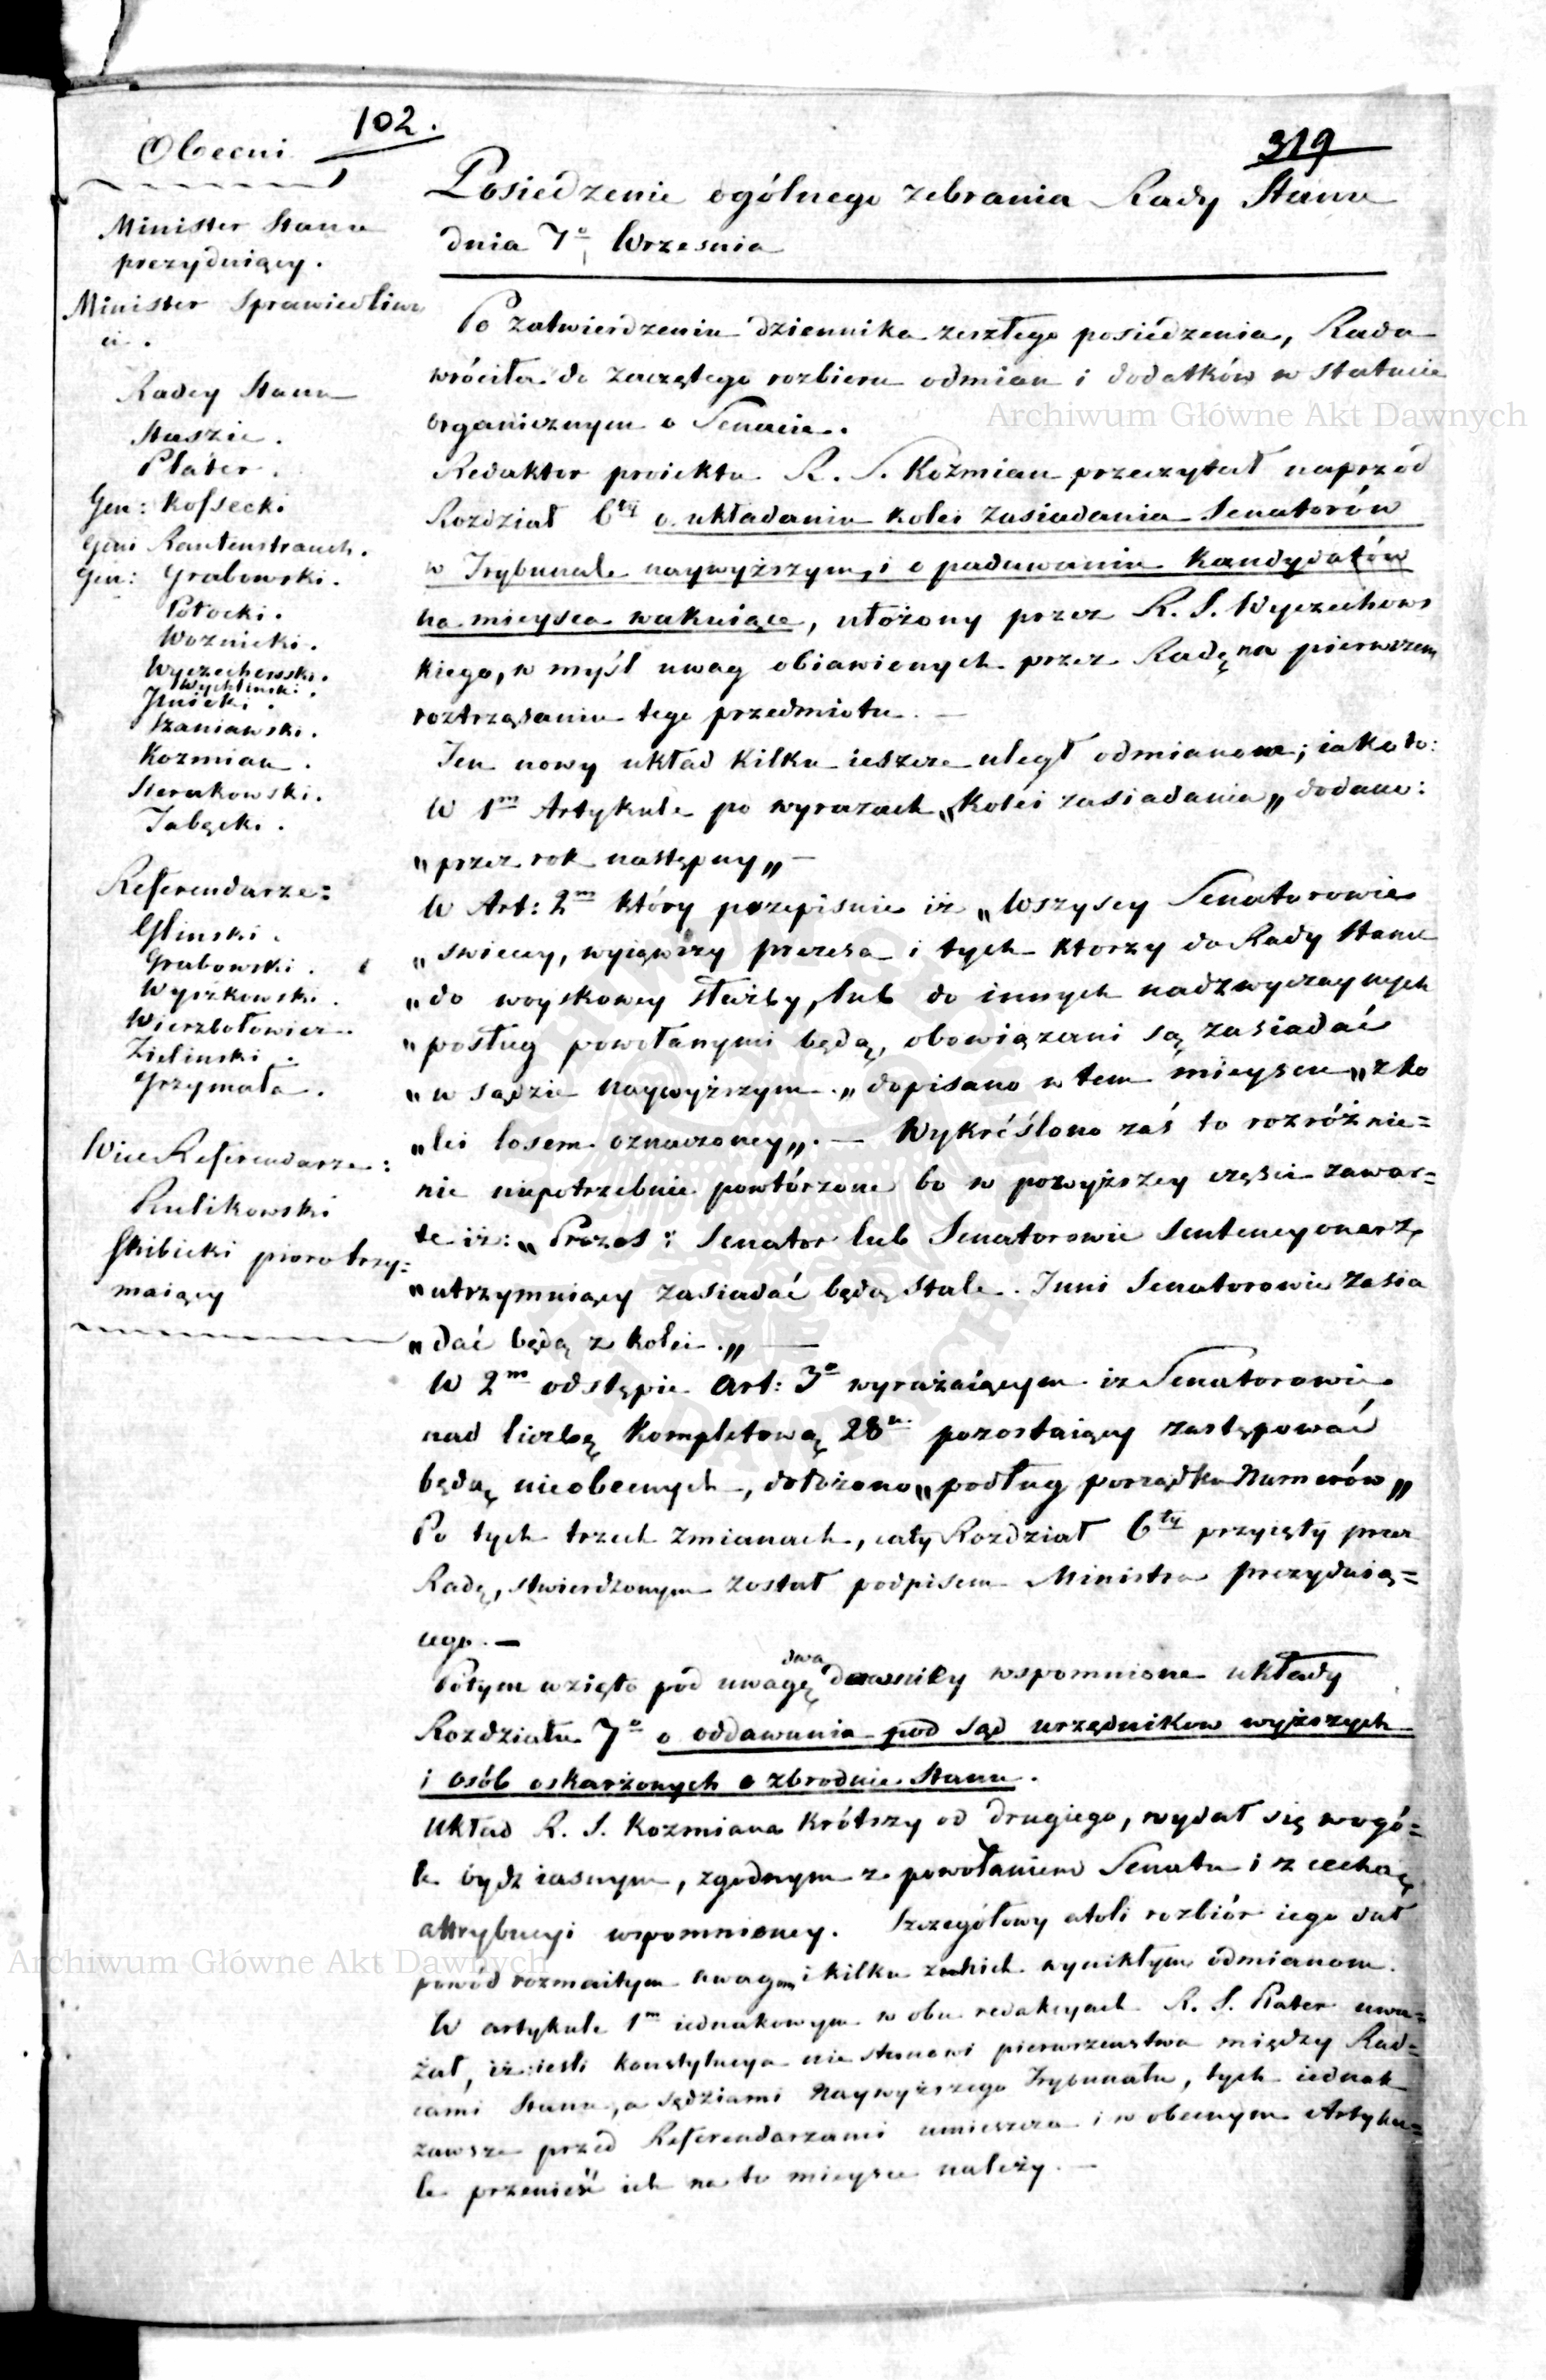 102.
319
Obecni
Minister Stanu
prezyduiący.
Minister Sprawiedliwo
ci.
Radcy Stanu
Staszic.
Plater.
Gen: Kossecki
Gen: Rautenstrauch.
Gen: Grabowski.
Potocki.
Woznicki.
Wyczechowski.
Wychlinski.
Szaniawski.
Kozmian.
Sierakowski.
Referendarze:
Glinski.
Grabowski.
Wyszkowski.
Wierzbołowicz.
Zielinski.
Grzymała.
Wice Referendarze:
Kulikowski
Skibicki pioro trzy=
maiący
Posiedzenie ogólnego zebrania Rady Stanu
dnia 7o Wrzesnia
Po zatwierdzeniu dziennika zeszłego posiedzenia, Rada
wróciła do zaczętego rozbioru odmian i dodatków w Statucie
organicznym o Senacie.
Redaktor proiektu R. S. Kozmian przeczytał naprzód
Rozdział 6ty o układaniu kolei zasiadania Senatorów
w Trybunale naywyższym, i o podawaniu Kandydatów
na mieysca wakuiące, ułożony przez R. S. Wyczechows
kiego, w myśl uwag obiawionych przez Radę na pierwszem
roztrząsaniu tego przedmiotu. —
Ten nowy układ kilku ieszcze uległ odmianom; iako to:
W 1m Artykule po wyrazach „Kolei zasiadania„ dodano:
„przez rok następny„ —
W Art: 2m który przepisuie iż „Wszyscy Senatorowie
„swieccy, wyiąwszy prezesa i tych ktorzy do Rady Stanu
„do woyskowey służby, lub do innych nadzwyczaynych
„posług powołanymi będą, obowiązani są zasiadać
„w sądzie Naywyższym.„ dopisano w tem mieyscu „z ko
„lei losem oznaczoney„. — Wykréślono zaś to rozróżnie=
nie niepotrzebnie powtórzone bo w powyższey części zawar=
te iż: „Prezes i Senator lub Senatorowie Sentencyonarz
„utrzymuiący zasiadać będą stale. Inni Senatorowie zasia
„dać będą z kolei.„ —
W 2m odstępie Art: 3o wyrażaiącym iż Senatorowie
nad liczbę kompletową 28u pozostaiący zastępować
będą nieobecnych, dołożono „podług porządku Numerów„
Po tych trzech zmianach, cały Rozdział 6ty przyięty przez
Radę, stwierdzonym został podpisem Ministra prezyduią=
cego. —
Potym wzięto pod uwagę dwa wspomnione układy
Rozdziału 7o o oddawaniu pod sąd urzędnikow wyższych
i osób oskarżonych o zbrodnie Stanu.
Układ R. S. Kozmiana krótszy od drugiego, wydał się wogó=
le bydź iasnym, zgodnym z powołaniem Senatu i z cechą
attrybucyi wspomnioney. Szczegółowy atoli rozbiór iego dał
powód rozmaitym uwagom i kilku z nich wynikłym odmianom.
W artykule 1m iednakowym w obu redakcyach R. S. Plater uwa=
żał, iż ieśli konstytucya nie stanowi pierwszenstwa między Rad=
cami Stanu, a sędziami Naywyższego Trybunału, tych iednak
zawsze przed Referendarzami umieszcza i w obecnym Artyku=
le przenieść ich na to mieysce należy. —
Archiwum Główne Akt Dawnych
Archiwum Główne Akt Dawnych